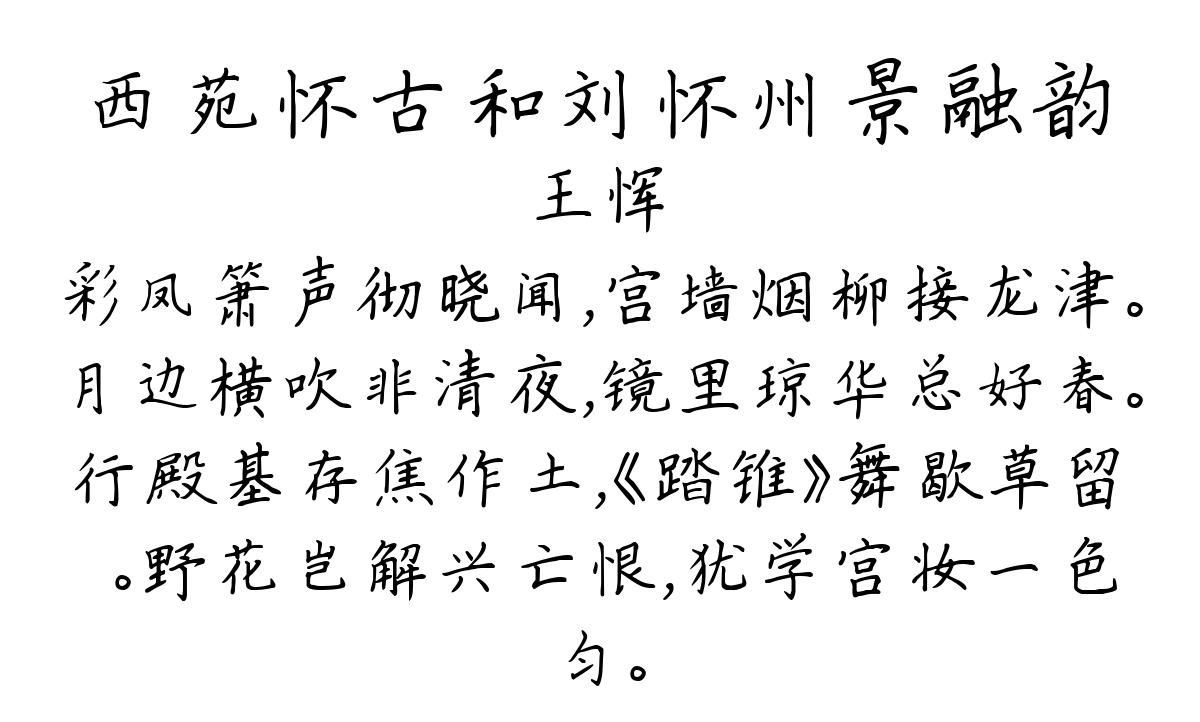 西苑怀古和刘怀州景融韵
王恽
彩凤箫声彻晓闻,宫墙烟柳接龙津。
月边横吹非清夜,镜里琼华总好春。
行殿基存焦作土,《踏锥》舞歇草留
。野花岂解兴亡恨,犹学宫妆一色
匀。